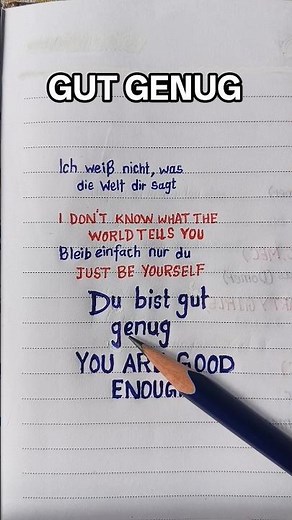 GUT GENUG
Ich weiß nicht, was
die Welt dir sagt
I DON'T KNOW WHAT THE
WORLD TELLS YOU
Bleib einfach nur du
JUST BE YOURSELF
Du bist gut
genug
YOU ARE GOOD
ENOUGH